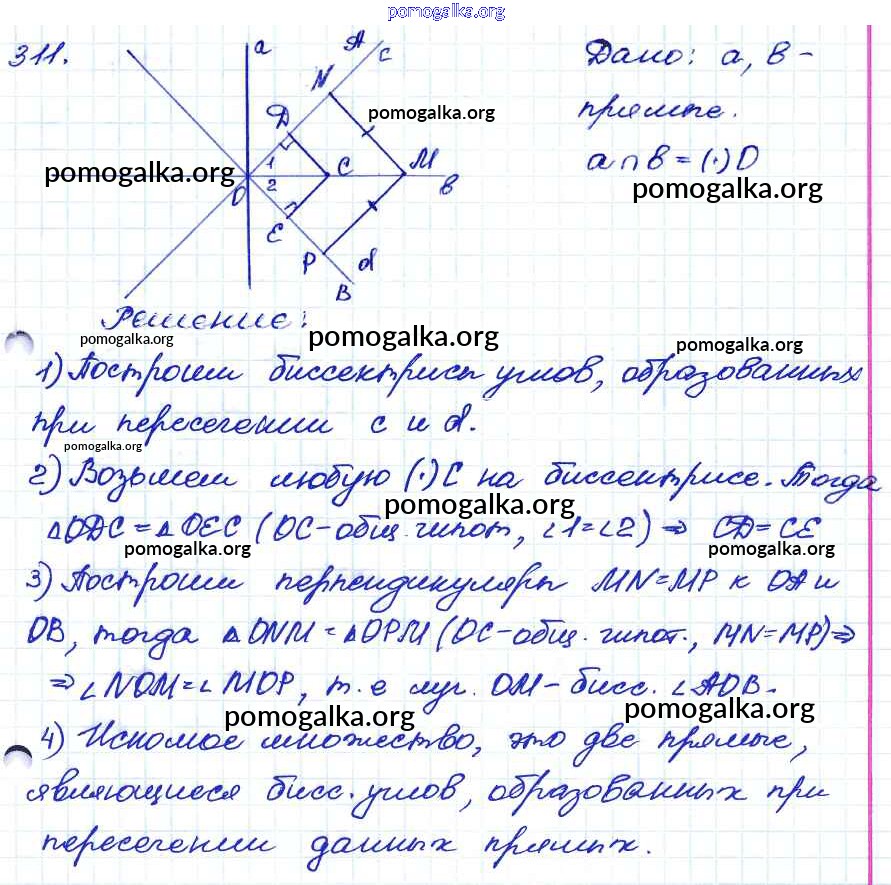 pomogalka.org
311.
a
A
c
N
Д
1
C
M
в
O
2
E
P
d
B
Дано: a, в -
прямые.
a ∩ в = (·) O
pomogalka.org
pomogalka.org
pomogalka.org
Решение:
pomogalka.org
pomogalka.org
pomogalka.org
1) Построим биссектрисы углов, образованных
при пересечении c и d.
pomogalka.org
2) Возьмем любую (·) C на биссектрисе. Тогда
pomogalka.org
△ОДС = △ОЕС (ОС - общ. гипот, ∠1 = ∠2) ⇒ СД = СЕ
pomogalka.org
pomogalka.org
3) Построим перпендикуляры MN = MP к ОА и
ОВ, тогда △ONM = △OPM (ОС - общ. гипот., MN = MP) ⇒
⇒ ∠NOM = ∠MOP, т.е луч. ОМ - бисс. ∠АОВ.
pomogalka.org
pomogalka.org
4) Искомое множество, это две прямые,
являющиеся бисс. углов, образованных при
пересечении данных прямых.